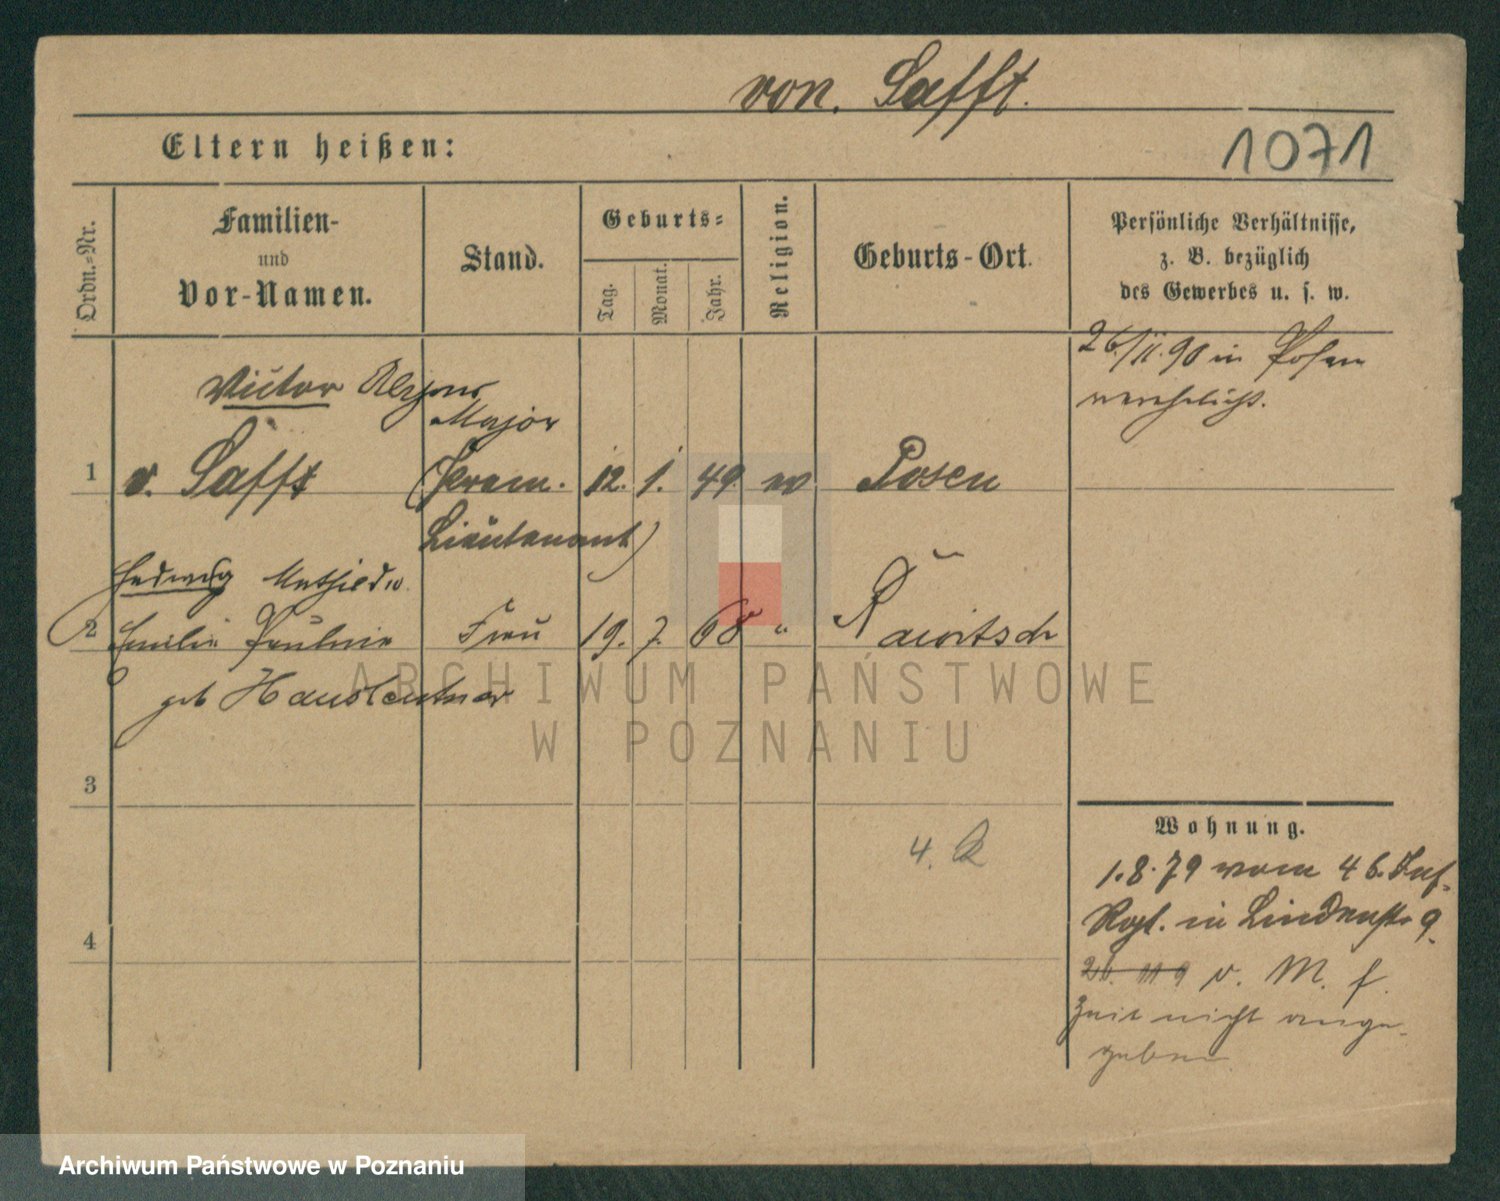 von. Safft.
Eltern heißen:
1071
Ordn.-Nr.
Familien-
und
Vor-Namen.
Stand.
Geburts-
Tag.
Monat.
Jahr.
Religion.
Geburts-Ort.
Persönliche Verhältnisse,
z. B. bezüglich
des Gewerbes u. s. w.
26/11.90 in Posen
verehelicht.
Victor
Major
1 v. Safft (Prem. 12. 1. 49 ev Posen
Lieutenant)
Hedwig Mathilde
2 Emilie Pauline Frau 19. 7. 68 " Rawitsch
geb Hausleutner
ARCHIWUM PAŃSTWOWE
W POZNANIU
3
Wohnung.
4. R
1.8.79 vom 46. Inf-
Rgt. in Lindenstr 9.
4
26. 11 9 v. M. f.
Zeit nicht ange-
geben
Archiwum Państwowe w Poznaniu